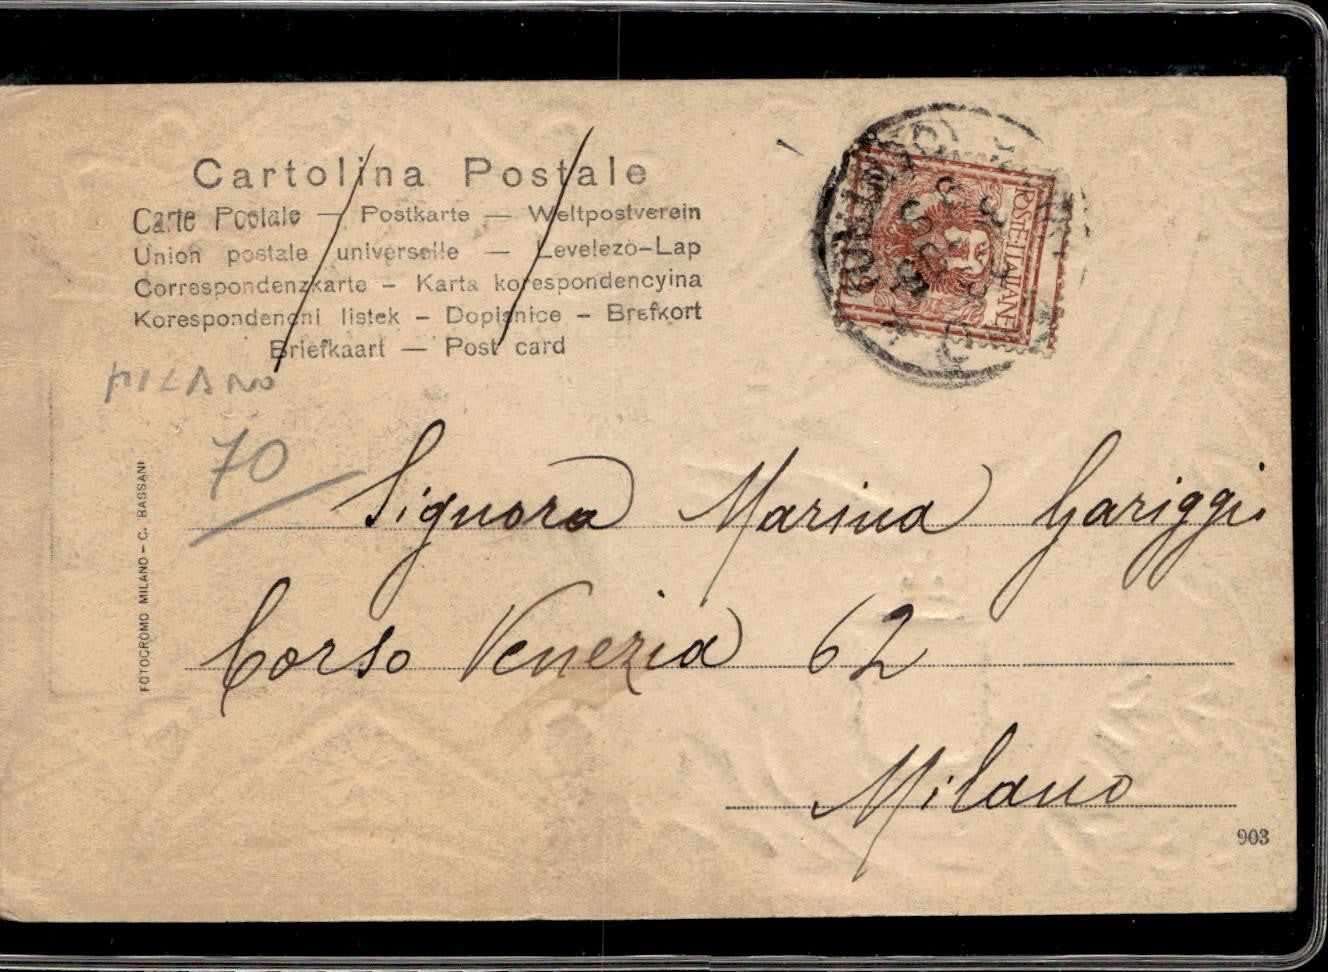 Cartolina Postale
Carte Postale — Postkarte — Weltpostverein
Union postale universelle — Levelezö-Lap
Correspondenzkarte – Karta korespondencyina
Korespondencni listek – Dopisnice – Brefkort
Briefkaart — Post card
MILANO
70
FOTOCROMO MILANO – C. BASSANI
POSTE ITALIANE
Signora Marina Gariggi.
Corso Venezia 62
Milano
903